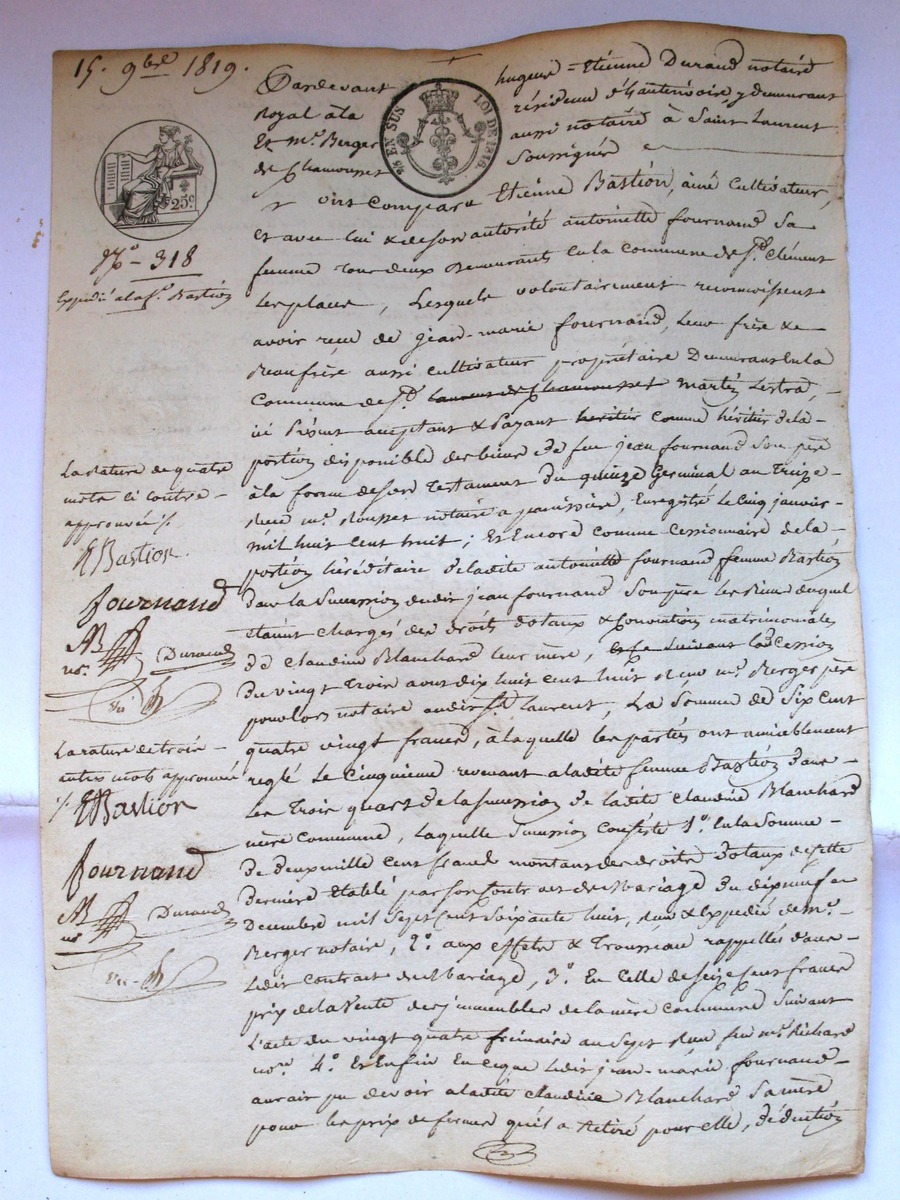 15. 9bre 1819.
Pardevant hugues = Etienne Durand notaire
Royal à la résidence d'hauterivoire, y demeurant
Et Me. Berger aussi notaire à Saint Laurent
de Chamousset Soussignés
25 EN SUS LOI DE 1816.
25c
No - 318
Expédié à la fe. Bastion
Etienne Bastion, ainé cultivateur,
et avec lui & de son autorité antoinette fournand sa
femme tous deux demeurants en la commune de St. Clément
les places, Lesquels volontairement reconnoissent
avoir reçu de jean-marie fournand, leur frère &
Beaufrère aussi cultivateur propriétaire Demeurant en la
Commune de St. Laurent de Chamousset martin Lestra,
ici Présent acceptant & Payant heritier comme héritier de la
portion disponible des biens de feu jean fournand Son père
à la forme de son Testament du quinze Germinal an Treize
reçu me. Rousset notaire a panissière, Enregistré le cinq janvier
mil huit cent huit; Et Encore comme cessionnaire de la
portion héréditaire de ladite antoinette fournand femme Bastion
dans la Succession dudit jean fournand Son père les Biens duquel
étaient chargés des droits dotaux & conventions matrimoniales
de Claudine Blanchard leur mère, Cession
Du vingt trois aout dix huit cent huit reçu me. Berger père
pour lors notaire audit St. Laurent, La Somme de Six cent
quatre vingt francs, à laquelle les parties ont amiablement
reglé Le Cinquième revenant a ladite femme Bastion dans
Les Trois quart de la succession de ladite Claudine Blanchard
mère Commune, Laquelle Succession consiste 1o. En la Somme
De deux mille Cent francs montant des droits dotaux de cette
dernière établé par son Contract de Mariage du dix neuf
Décembre mil Sept Cent Soixante huit, reçu & Expédié de Me.
Berger notaire, 2o. aux effets & Trousseau rappellés dans
Ledit Contract de Mariage, 3o. En Celle de Seize cent francs
prix de la Vente des jmmeubles de la mère Commune Suivant
L'acte du vingt quatre frimaire an Sept reçu feu me. Richard
nore. 4o. Et Enfin En ce que ledit jean-marie fournand
aurait pu devoir a ladite Claudine Blanchard Sa mère
pour les prix de ferme qu'il a retiré pour elle, déduction
La rature de quatre
mots ci contre
approuvée ./.
E Bastion
fournand
Durand
La rature de trois
autres mots approuvée
./. E Bastion
fournand
Durand